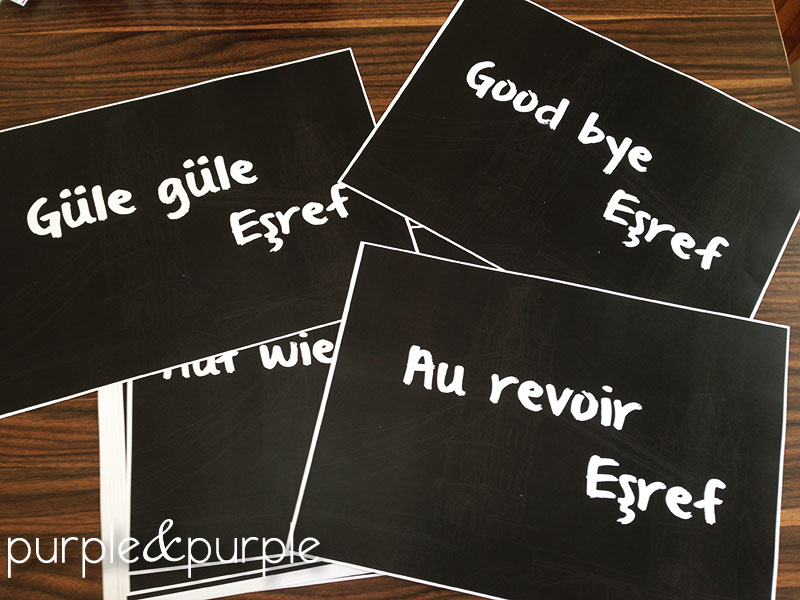 Güle güle
Eşref
Good bye
Eşref
Auf wie
Au revoir
Eşref
purple&purple